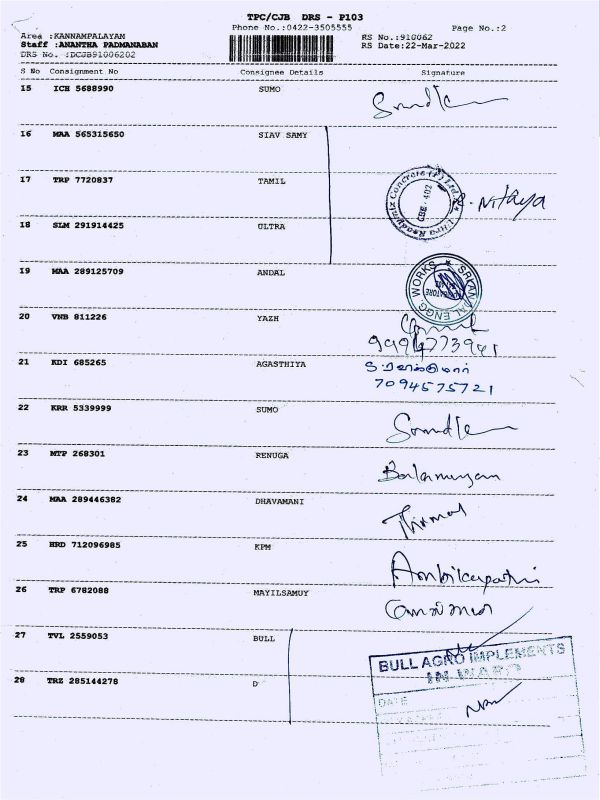 TPC/CJB DRS - P103
Phone No.:0422-3505555 Page No.:2
Area :KANNAMPALAYAM RS No.:910062
Staff :ANANTHA PADMANABAN RS Date:22-Mar-2022
DRS No. :DCJB91006202
S No Consignment No Consignee Details Signature
15 ICH 5688990 SUMO
16 MAA 565315650 SIAV SAMY
17 TRP 7720837 TAMIL
Ultra Readymix Concrete (P) Ltd. CBE-402
Nithya
18 SLM 291914425 ULTRA
19 MAA 289125709 ANDAL
SRI ANDAL ENGG. WORKS
20 VNB 811226 YAZH
21 KDI 685265 AGASTHIYA
7094575721
22 KRR 5339999 SUMO
23 MTP 268301 RENUGA
Balamurugan
24 MAA 289446382 DHAVAMANI
Thirumal
25 HRD 712096985 KPM
Ambikapathi
26 TRP 6782088 MAYILSAMUY
27 TVL 2559053 BULL
BULL AGRO IMPLEMENTS
INWARD
28 TRZ 285144278 D
DATE